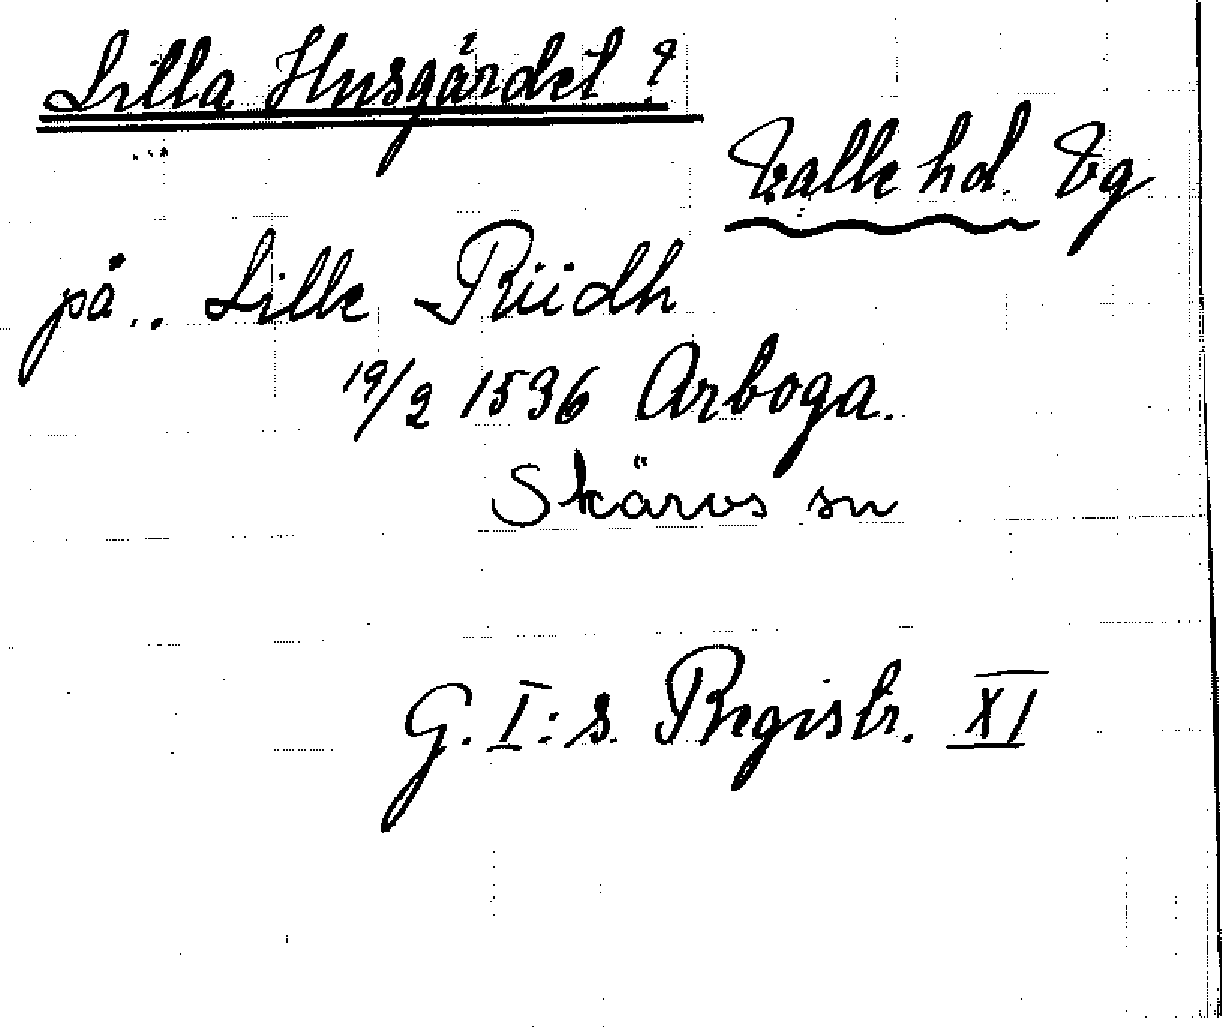 Lilla Husgärdet ?
Valle hd. Vg
på .. Lille Rüdh
19/2 1536 Arboga.
Skärvs sn
G. I:s Registr. XI